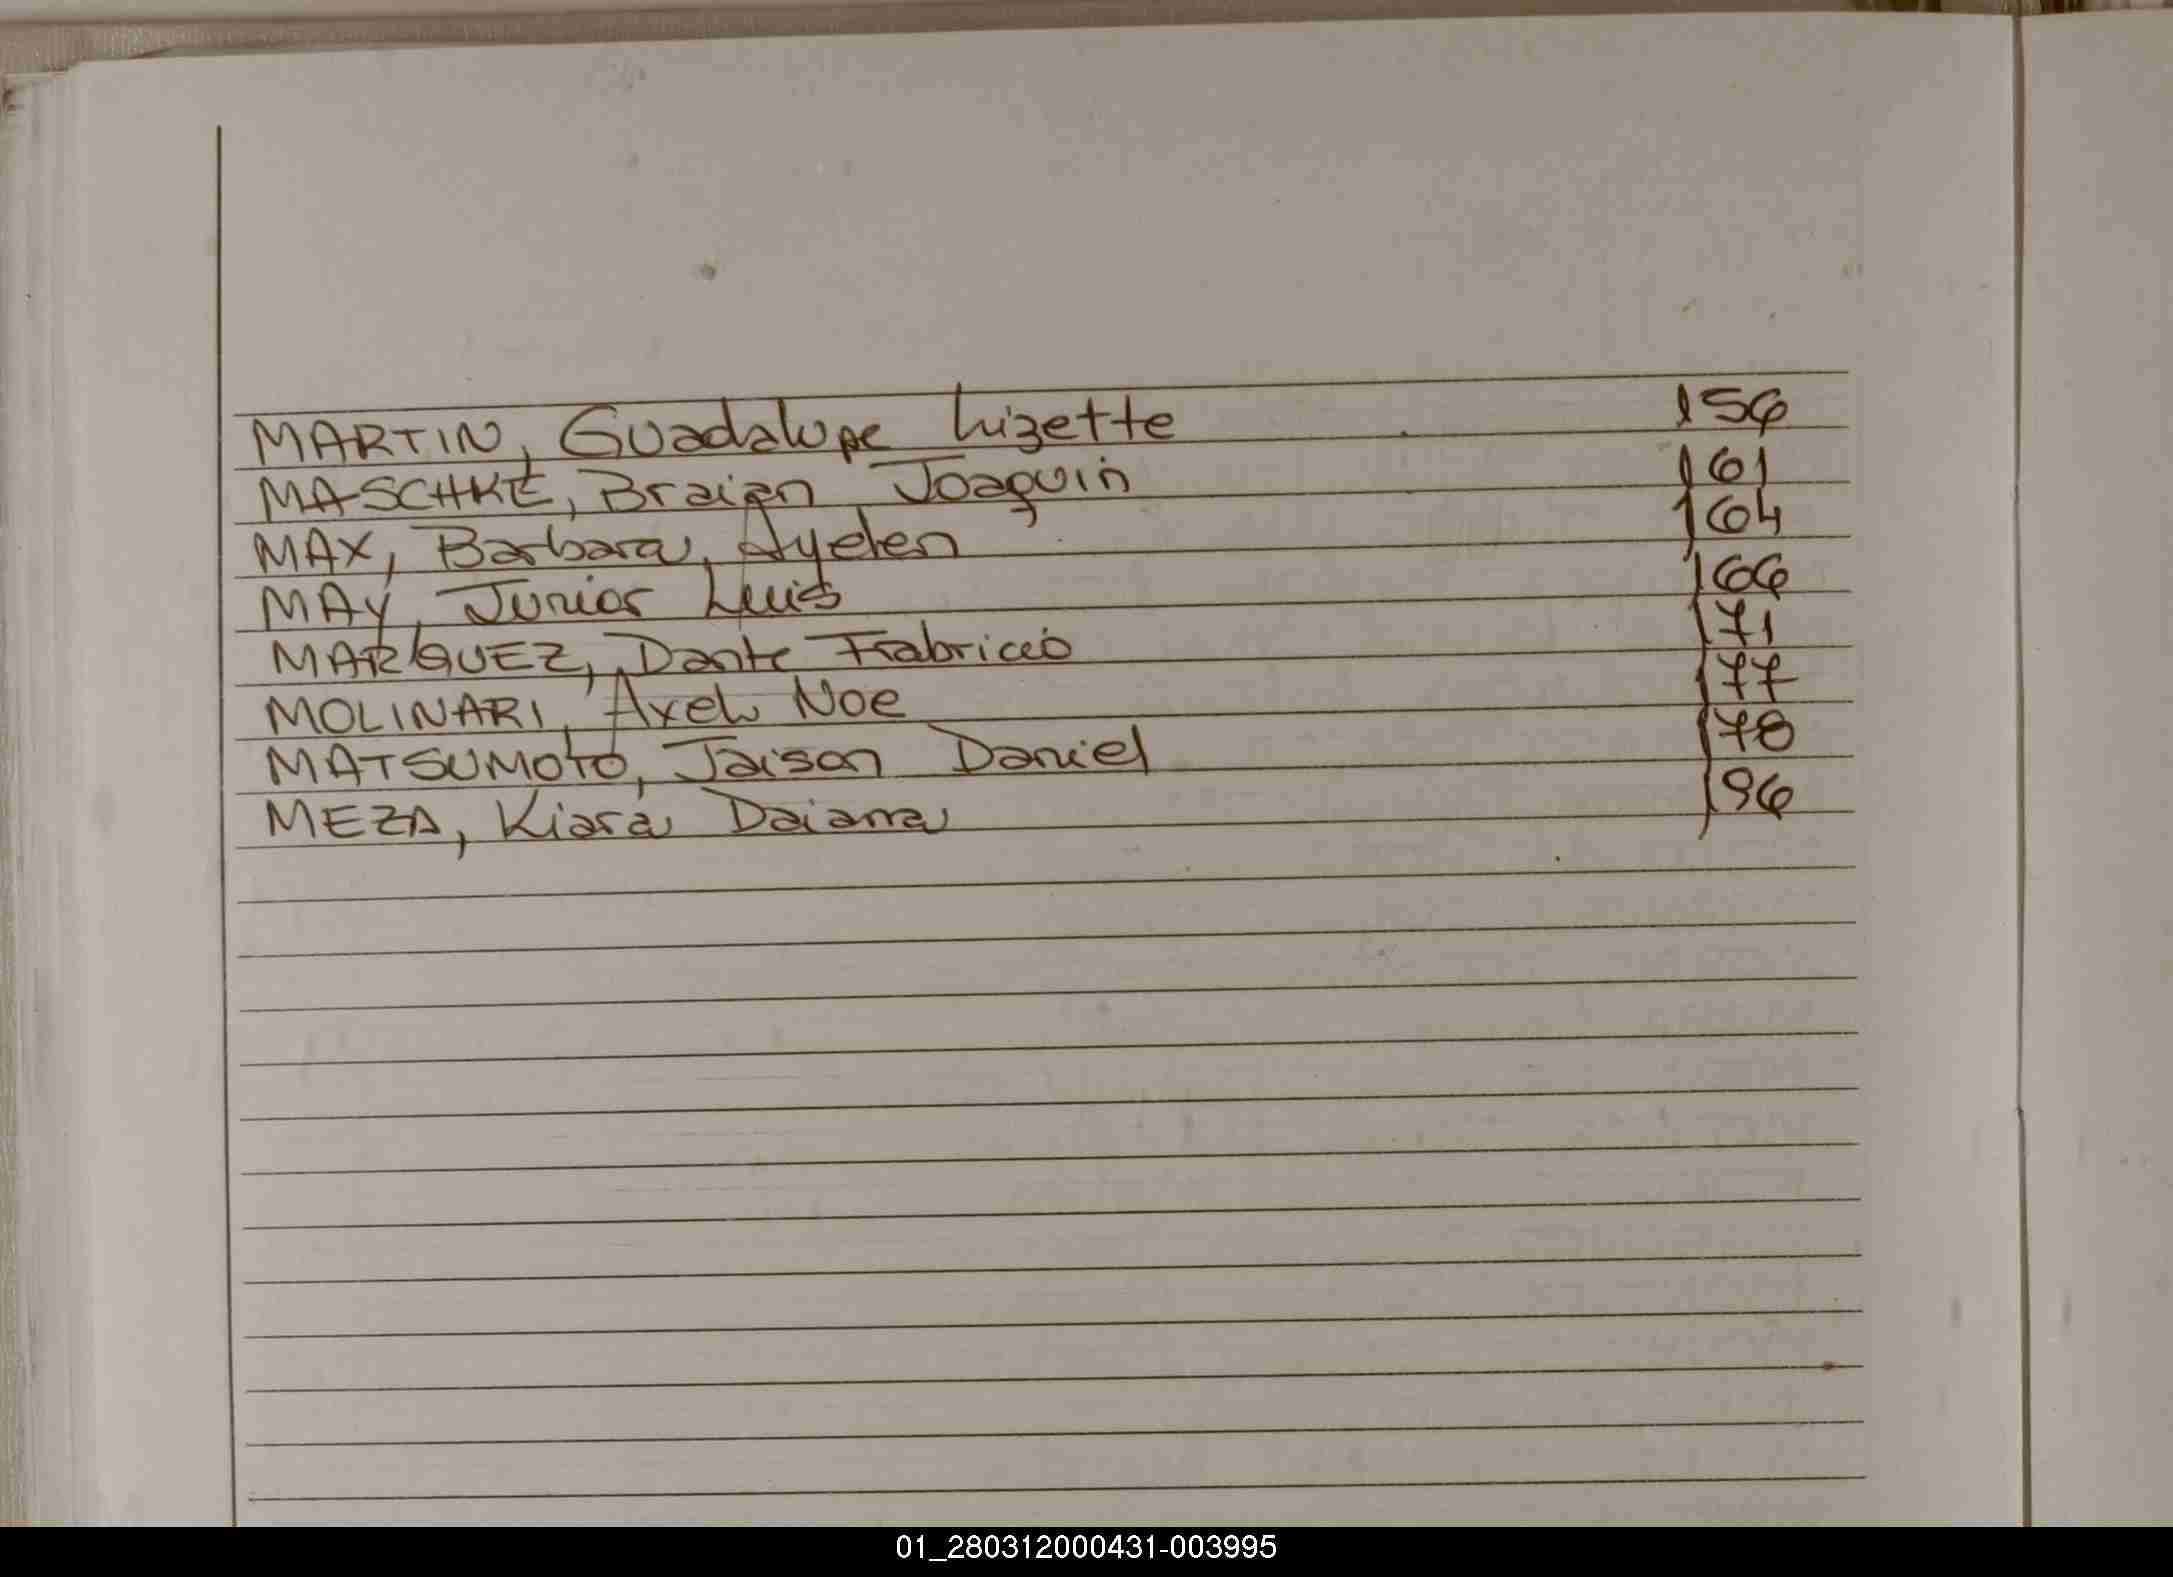 MARTIN, Guadalupe Lizette 156
MASCHKE, Braian Joaquin 161
MAX, Barbara Ayelen 164
MAY, Junior Luis 166
MARQUEZ, Dante Fabricio 171
MOLINARI, Axel Noe 177
MATSUMOTO, Jaison Daniel 178
MEZA, Kiara Daiana 196
01_280312000431-003995